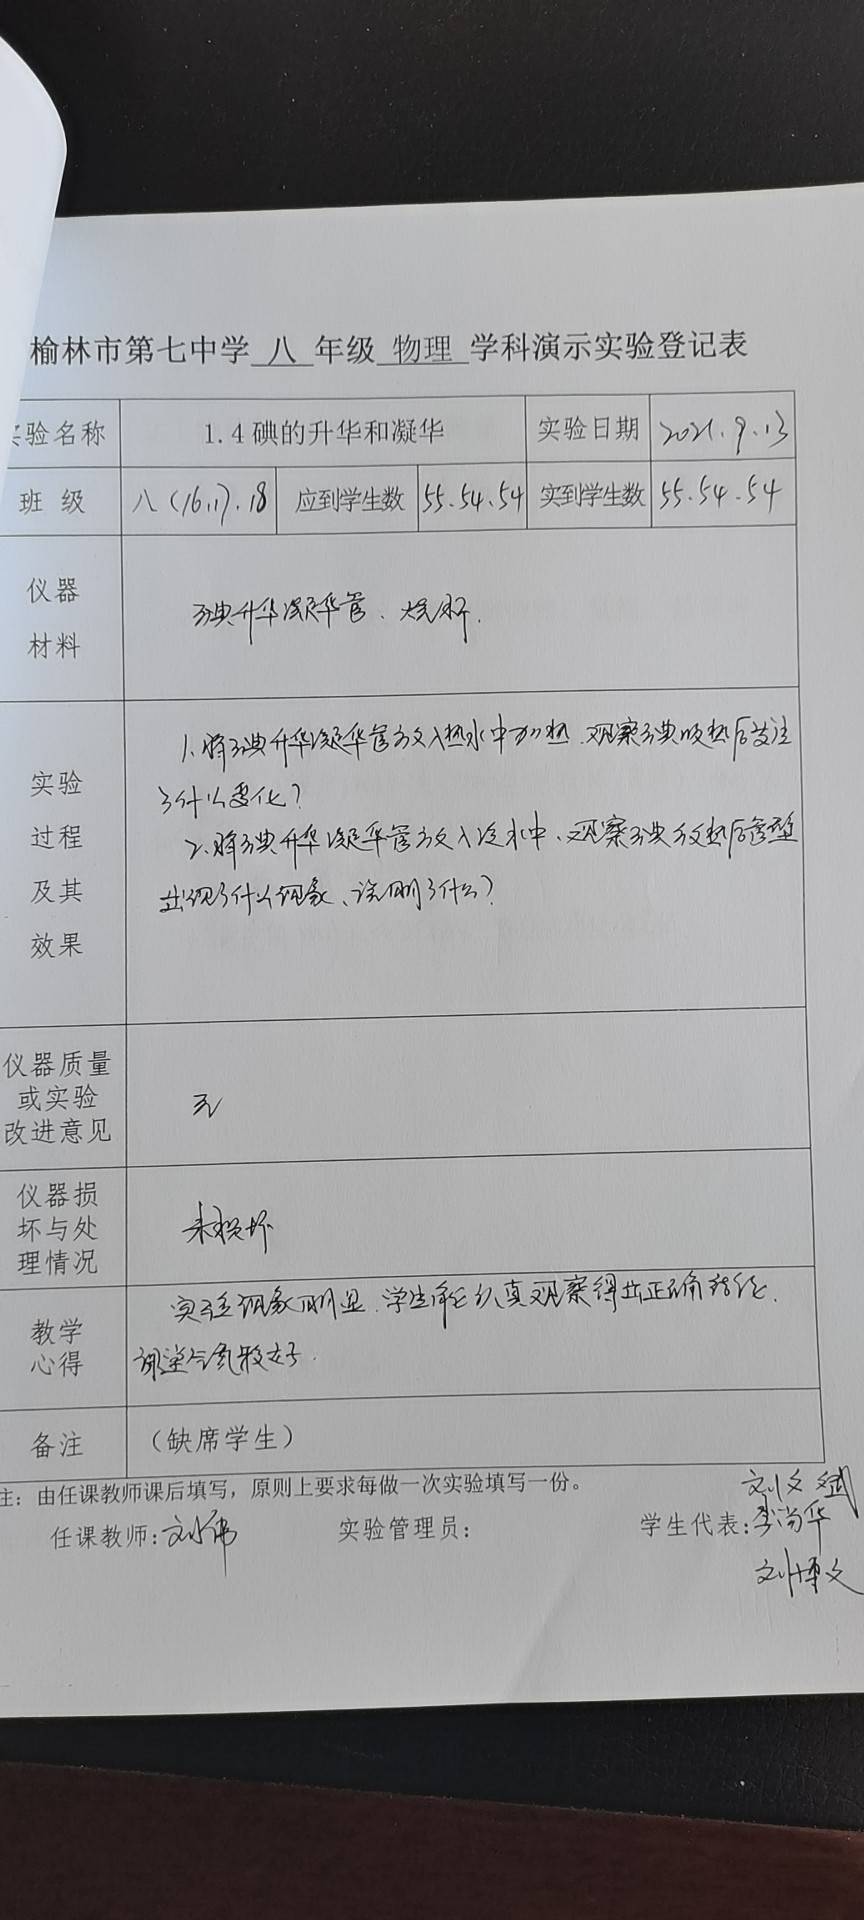 榆林市第七中学 八 年级 物理 学科演示实验登记表
实验名称 1.4碘的升华和凝华 实验日期 2021.9.13
班 级 八(16.17.18 应到学生数 55.54.54 实到学生数 55.54.54
仪器
材料
碘升华凝华管、烧杯.
实验
过程
及其
效果
1.将碘升华凝华管放入热水中加热.观察碘吸热后发生
了什么变化?
2.将碘升华凝华管放入冷水中、观察碘放热后管壁
出现了什么现象、说明了什么?
仪器质量
或实验
改进意见
无
仪器损
坏与处
理情况
未损坏
教学
心得
实验现象明显.学生能认真观察得出正确结论.
课堂气氛较好.
备注 (缺席学生)
注: 由任课教师课后填写,原则上要求每做一次实验填写一份。
任课教师:刘伟 实验管理员: 学生代表:
刘文斌
李尚华
刘博文